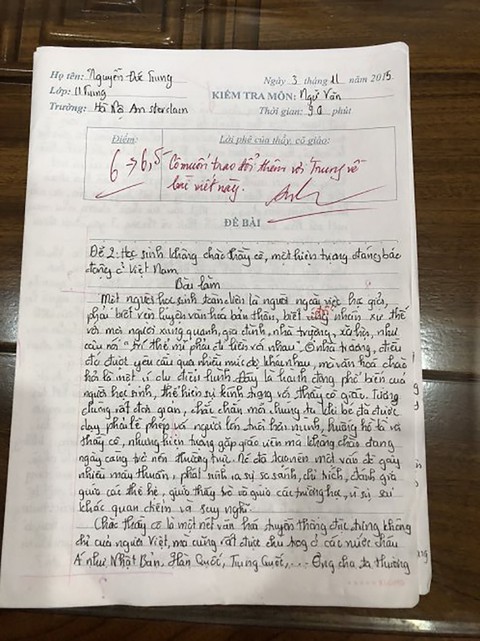 Họ tên: Nguyễn Đức Trung Ngày 3 tháng 11 năm 2015
Lớp: 11 Trung KIỂM TRA MÔN: Ngữ Văn
Trường: Hà Nội Amsterdam Thời gian: 90 phút
Điểm: Lời phê của thầy, cô giáo:
6 → 6,5 Cô muốn trao đổi thêm với Trung về
bài viết này.
ĐỀ BÀI
Đề 2: Học sinh không chào thầy cô, một hiện tượng đáng báo
động ở Việt Nam
Bài làm
Một người học sinh toàn diện là người ngoài việc học giỏi,
phải biết rèn luyện văn hóa bản thân, biết nhân xử thế
với mọi người xung quanh, gia đình, nhà trường, xã hội, như
câu nói "xử thế mà phải đi liền với nhau". Ở nhà trường, điều
đó được yêu cầu qua nhiều mức độ khác nhau, mà văn hóa chào
hỏi là một ví dụ điển hình. Đây là hành động phổ biến của
người học sinh, thể hiện sự kính trọng với thầy cô giáo. Tưởng
chừng rất đơn giản, chắc chắn mỗi chúng ta khi bé đã được
dạy phải lễ phép với người lớn tuổi hơn mình, huống hồ là với
thầy cô, nhưng hiện tượng gặp giáo viên mà không chào đang
ngày càng trở nên thường trực. Nó đã tạo nên một vấn đề gây
nhiều mâu thuẫn, phát sinh ra sự so sánh, chỉ trích, đánh giá
giữa các thế hệ, giữa thầy trò và giữa các trường học, vì sự sai
khác quan điểm và suy nghĩ.
Chào thầy cô là một nét văn hóa truyền thống đặc trưng không
chỉ của người Việt, mà cũng rất được chú trọng ở các nước châu
Á như Nhật Bản, Hàn Quốc, Trung Quốc,... Ông cha ta thường